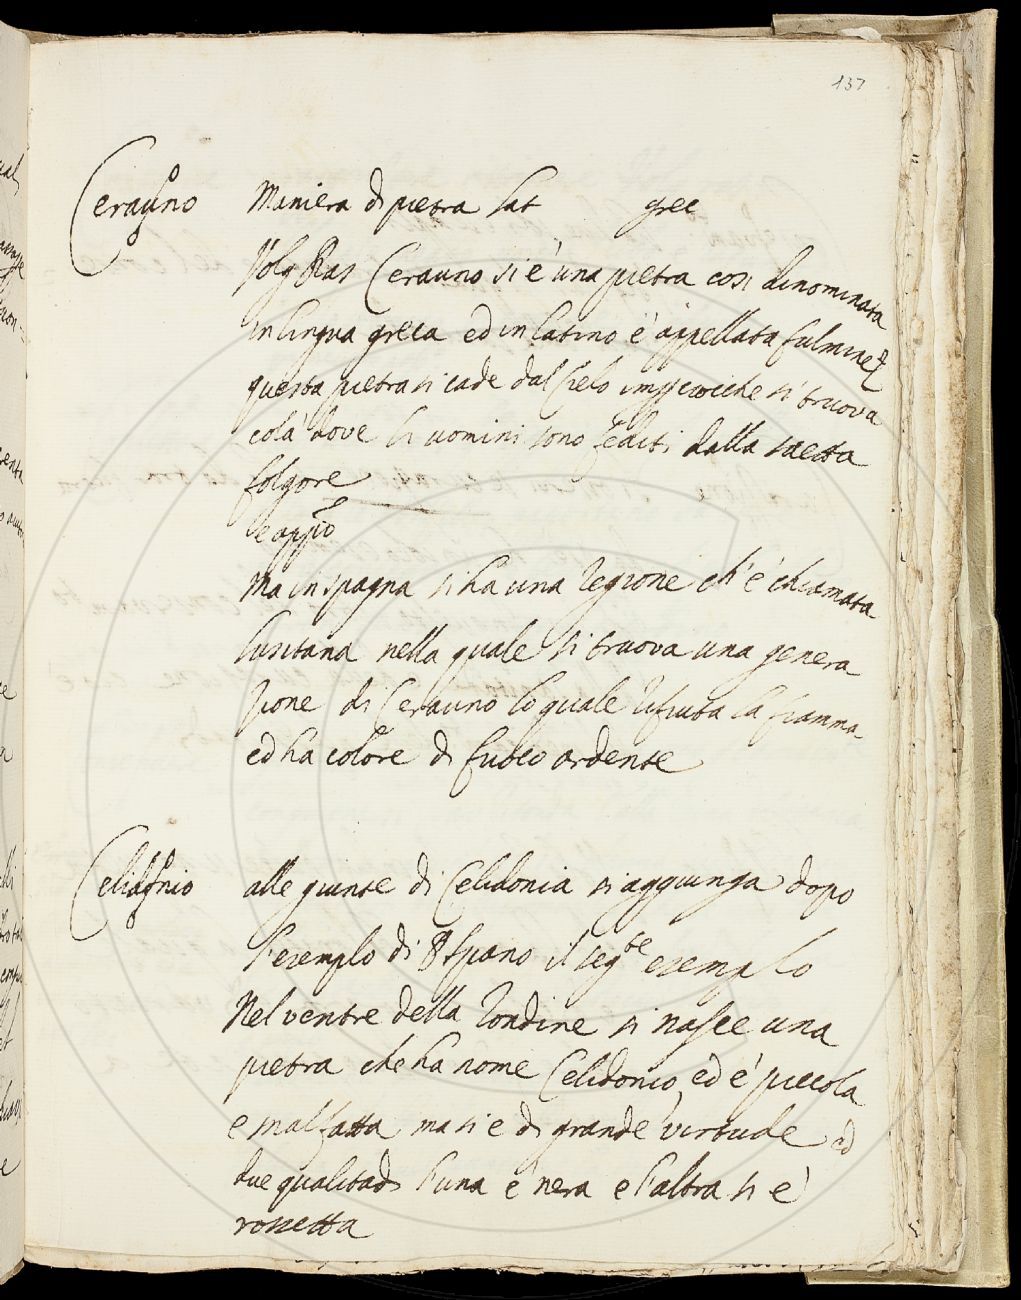 137
Cerauno Maniera di pietra Lat grec
Volg Ras Cerauno si è una pietra cosi dinominata
in lingua greca ed in latino è appellata fulmine e
questa pietra si cade dal Cielo impercioche si truova
colà dove li uomini sono fediti dalla saetta
folgore
e app.o
Ma in spagna si ha una regione ch'è chiamata
Lusitana nella quale si truova una genera
zione di Cerauno lo quale rifiuta la fiamma
ed ha colore di fuoco ardente
Celidonio alle giunte di Celidonia si aggiunga dopo
l'esemplo di Ispano il seg.te esemplo
Nel ventre della Rondine si nasce una
pietra che ha nome Celidonio, ed è piccola
e malfatta ma si e di grande virtude ed
due qualitadi l'una è nera e l'altra si è
rossetta